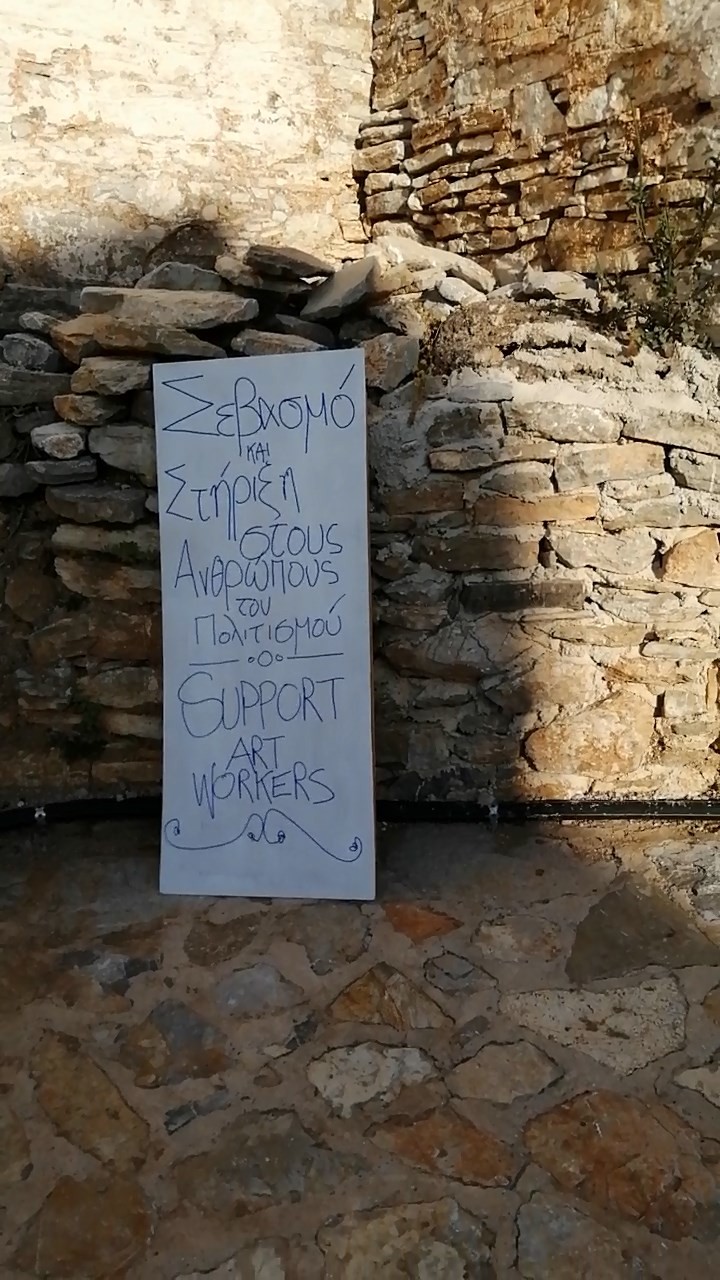 Σεβασμό
και
Στήριξη
στους
Ανθρώπους
του
Πολιτισμού
SUPPORT
ART
WORKERS